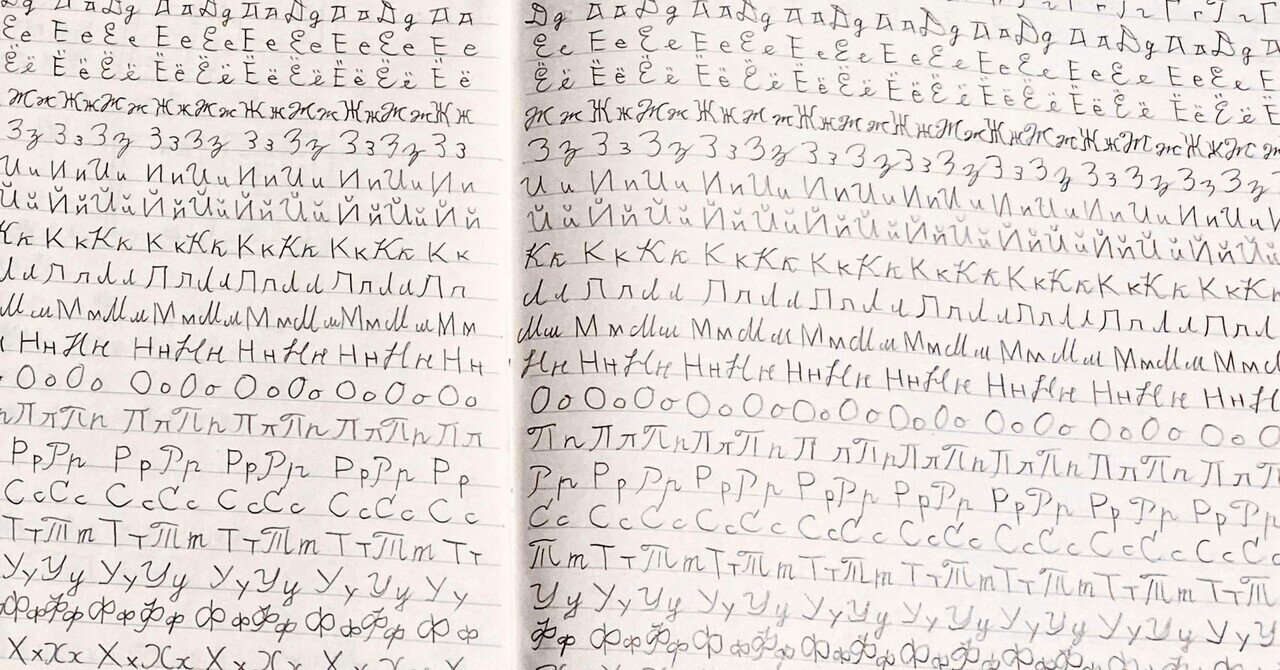 Дд Дд Дд Дд Дд Дд Дд Дд Дд
Ее Ее Ее Ее Ее Ее Ее Ее Ее Ее
Ёё Ёё Ёё Ёё Ёё Ёё Ёё Ёё Ёё Ёё
Жж Жж Жж Жж Жж Жж Жж Жж Жж Жж
Зз Зз Зз Зз Зз Зз Зз Зз Зз
Ии Ии Ии Ии Ии Ии Ии Ии Ии Ии
Йй Йй Йй Йй Йй Йй Йй Йй Йй Йй
Кк Кк Кк Кк Кк Кк Кк Кк Кк Кк
Лл Лл Лл Лл Лл Лл Лл Лл Лл Лл
Мм Мм Мм Мм Мм Мм Мм Мм Мм Мм
Нн Нн Нн Нн Нн Нн Нн Нн Нн
Оо Оо Оо Оо Оо Оо Оо Оо Оо
п Пп Пп Пп Пп Пп Пп Пп Пп Пп
Рр Рр Рр Рр Рр Рр Рр Рр Рр
Сс Сс Сс Сс Сс Сс Сс Сс Сс
Тт Тт Тт Тт Тт Тт Тт Тт Тт
Уу Уу Уу Уу Уу Уу Уу Уу Уу
Фф Фф Фф Фф Фф Фф Фф Фф Фф
Хх Хх Хх Хх Хх Хх Хх Хх Хх
Дд Дд Дд Дд Дд Дд Дд Дд Дд Дд Дд Дд Дд Дд Дд Д
Ее Ее Ее Ее Ее Ее Ее Ее Ее Ее Ее Ее Ее Ее Ее Е
Ёё Ёё Ёё Ёё Ёё Ёё Ёё Ёё Ёё Ёё Ёё Ёё Ёё Ёё Ёё Ё
Жж Жж Жж Жж Жж Жж Жж Жж Жж Жж Жж Жж Жж Жж Жж
Зз Зз Зз Зз Зз Зз Зз Зз Зз Зз Зз Зз Зз Зз Зз
Ии Ии Ии Ии Ии Ии Ии Ии Ии Ии Ии Ии Ии Ии Ии И
Йй Йй Йй Йй Йй Йй Йй Йй Йй Йй Йй Йй Йй Йй Йй
Кк Кк Кк Кк Кк Кк Кк Кк Кк Кк Кк Кк Кк Кк Кк
Лл Лл Лл Лл Лл Лл Лл Лл Лл Лл Лл Лл Лл Лл Л
Мм Мм Мм Мм Мм Мм Мм Мм Мм Мм Мм Мм Мм Мм
Нн Нн Нн Нн Нн Нн Нн Нн Нн Нн Нн Нн Нн Нн Н
Оо Оо Оо Оо Оо Оо Оо Оо Оо Оо Оо Оо Оо Оо О
Пп Пп Пп Пп Пп Пп Пп Пп Пп Пп Пп Пп Пп Пп П
Рр Рр Рр Рр Рр Рр Рр Рр Рр Рр Рр Рр Рр Рр Р
Сс Сс Сс Сс Сс Сс Сс Сс Сс Сс Сс Сс Сс Сс С
Тт Тт Тт Тт Тт Тт Тт Тт Тт Тт Тт Тт Тт Тт Т
Уу Уу Уу Уу Уу Уу Уу Уу Уу Уу Уу Уу Уу Уу У
Фф Фф Фф Фф Фф Фф Фф Фф Фф Фф Фф Фф Фф Фф